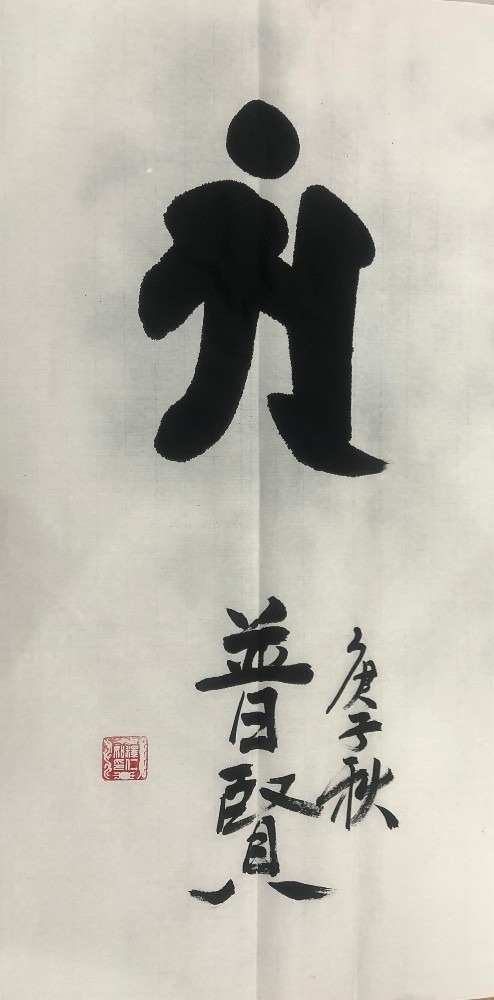 अं
庚子秋
普賢